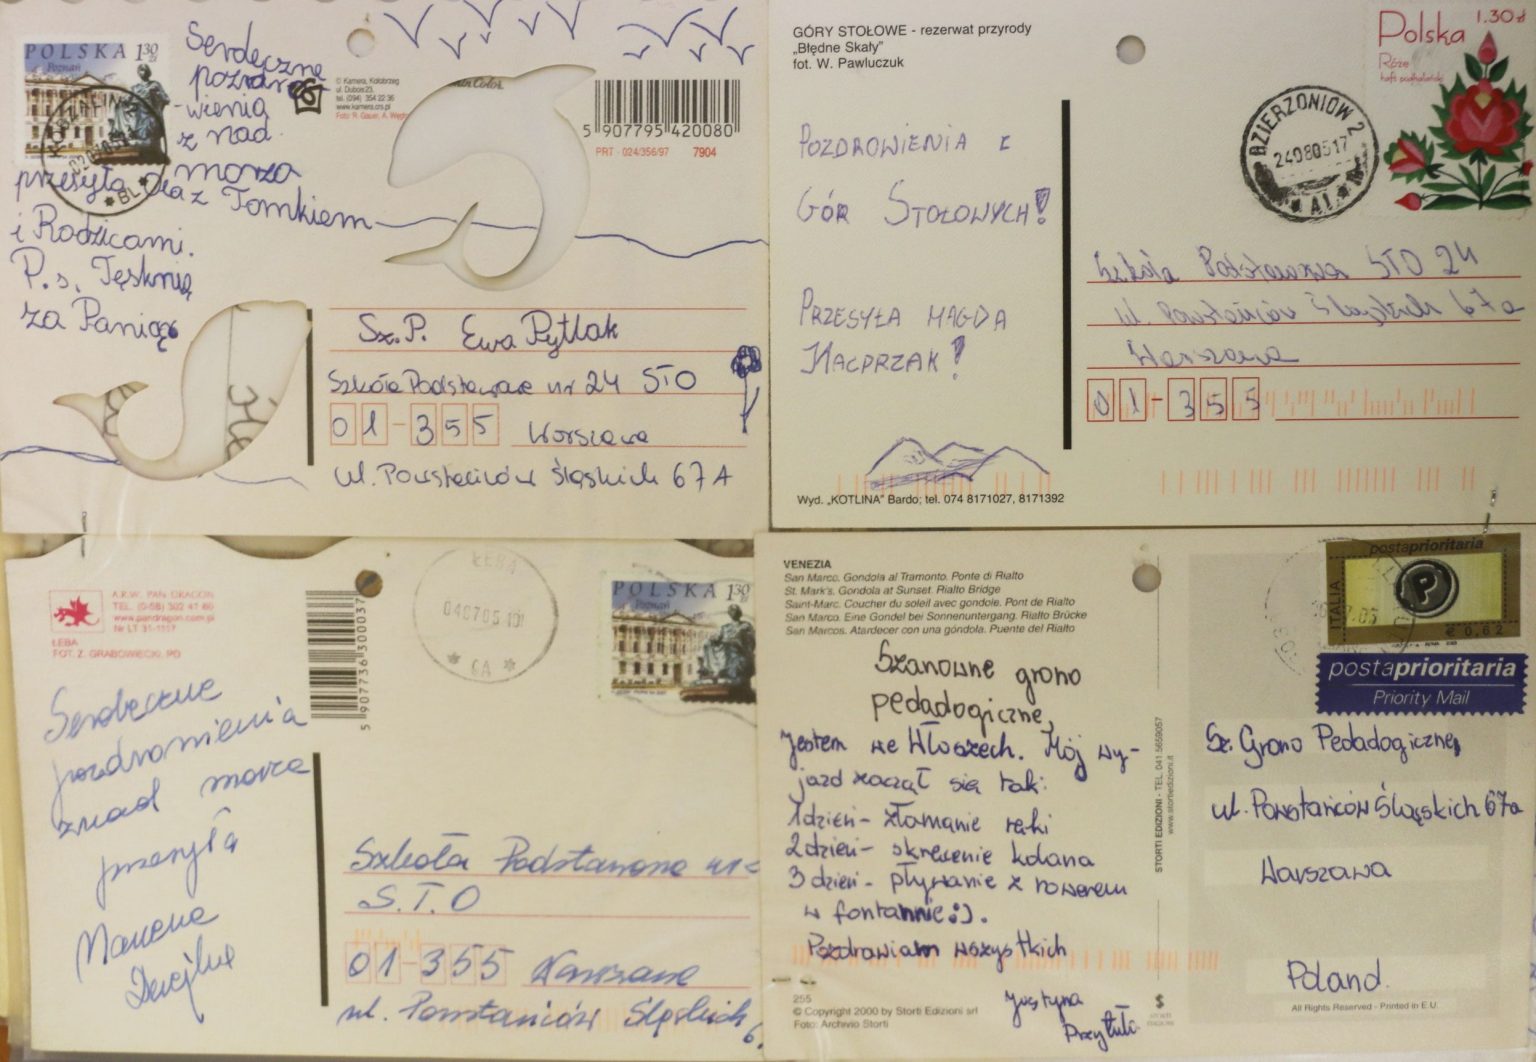 POLSKA 1 30 zł
Poznań
Serdeczne
pozdro-
-wienia
z nad
morza
przesyła Ola z Tomkiem
i Rodzicami.
P.s. Tęsknię
za Panią
KOŁOBRZEG
BL
© Kamera, Kołobrzeg
ul. Dubois 23,
tel. (094) 354 22 36
www.kamera.crs.pl
Foto: R. Gauer, A.
Color.
5 907795 420080
PRT - 024/356/97 7904
Sz. P. Ewa Pytlak
Szkoła Podstawowa nr 24 STO
01-355 Warszawa
ul. Powstańców Śląskich 67A
GÓRY STOŁOWE - rezerwat przyrody
„Błędne Skały”
fot. W. Pawluczuk
POZDROWIENIA Z
GÓR STOŁOWYCH!
PRZESYŁA MAGDA
KACPRZAK!
Wyd. „KOTLINA” Bardo; tel. 074 8171027, 8171392
Polska 1.30 zł
Róże
haft podhalański
DZIERŻONIÓW 2
24080517
A1
Szkoła Podstawowa STO 24
ul. Powstańców Śląskich 67a
Warszawa
01-355
A.R.W. PAN DRAGON
TEL. (0-58) 302 41 60
www.pandragon.com.pl
Nr LT 31-1117
ŁEBA
FOT. Z. GRABOWIECKI, PD
5 907736 300037
ŁEBA
040705
GA
POLSKA 1 30 zł
Poznań
Serdeczne
pozdrowienia
znad morza
przesyła
Szkoła Podstawowa nr
S.T.O
01-355 Warszawa
ul. Powstańców Śląskich 6
VENEZIA
San Marco. Gondola al Tramonto. Ponte di Rialto
St. Mark's. Gondola at Sunset. Rialto Bridge
Saint-Marc. Coucher du soleil avec gondole. Pont de Rialto
San Marco. Eine Gondel bei Sonnenuntergang. Rialto Brücke
San Marcos. Atardecer con una góndola. Puente del Rialto
Szanowne grono
pedagogiczne,
Jestem we Włoszech. Mój wy-
jazd zaczął się tak:
1 dzień - złamanie ręki
2 dzień - skręcenie kolana
3 dzień - pływanie z rowerem
w fontannie :).
Pozdrawiam wszystkich
Justyna
255
© Copyright 2000 by Storti Edizioni srl
Foto: Archivio Storti
STORTI EDIZIONI - TEL. 041 5659057
www.stortiedizioni.it
$
postaprioritaria
ITALIA
P
€ 0,62
postaprioritaria
Priority Mail
Sz. Grono Pedagogiczne
ul. Powstańców Śląskich 67a
Warszawa
Poland.
All Rights Reserved - Printed in E.U.